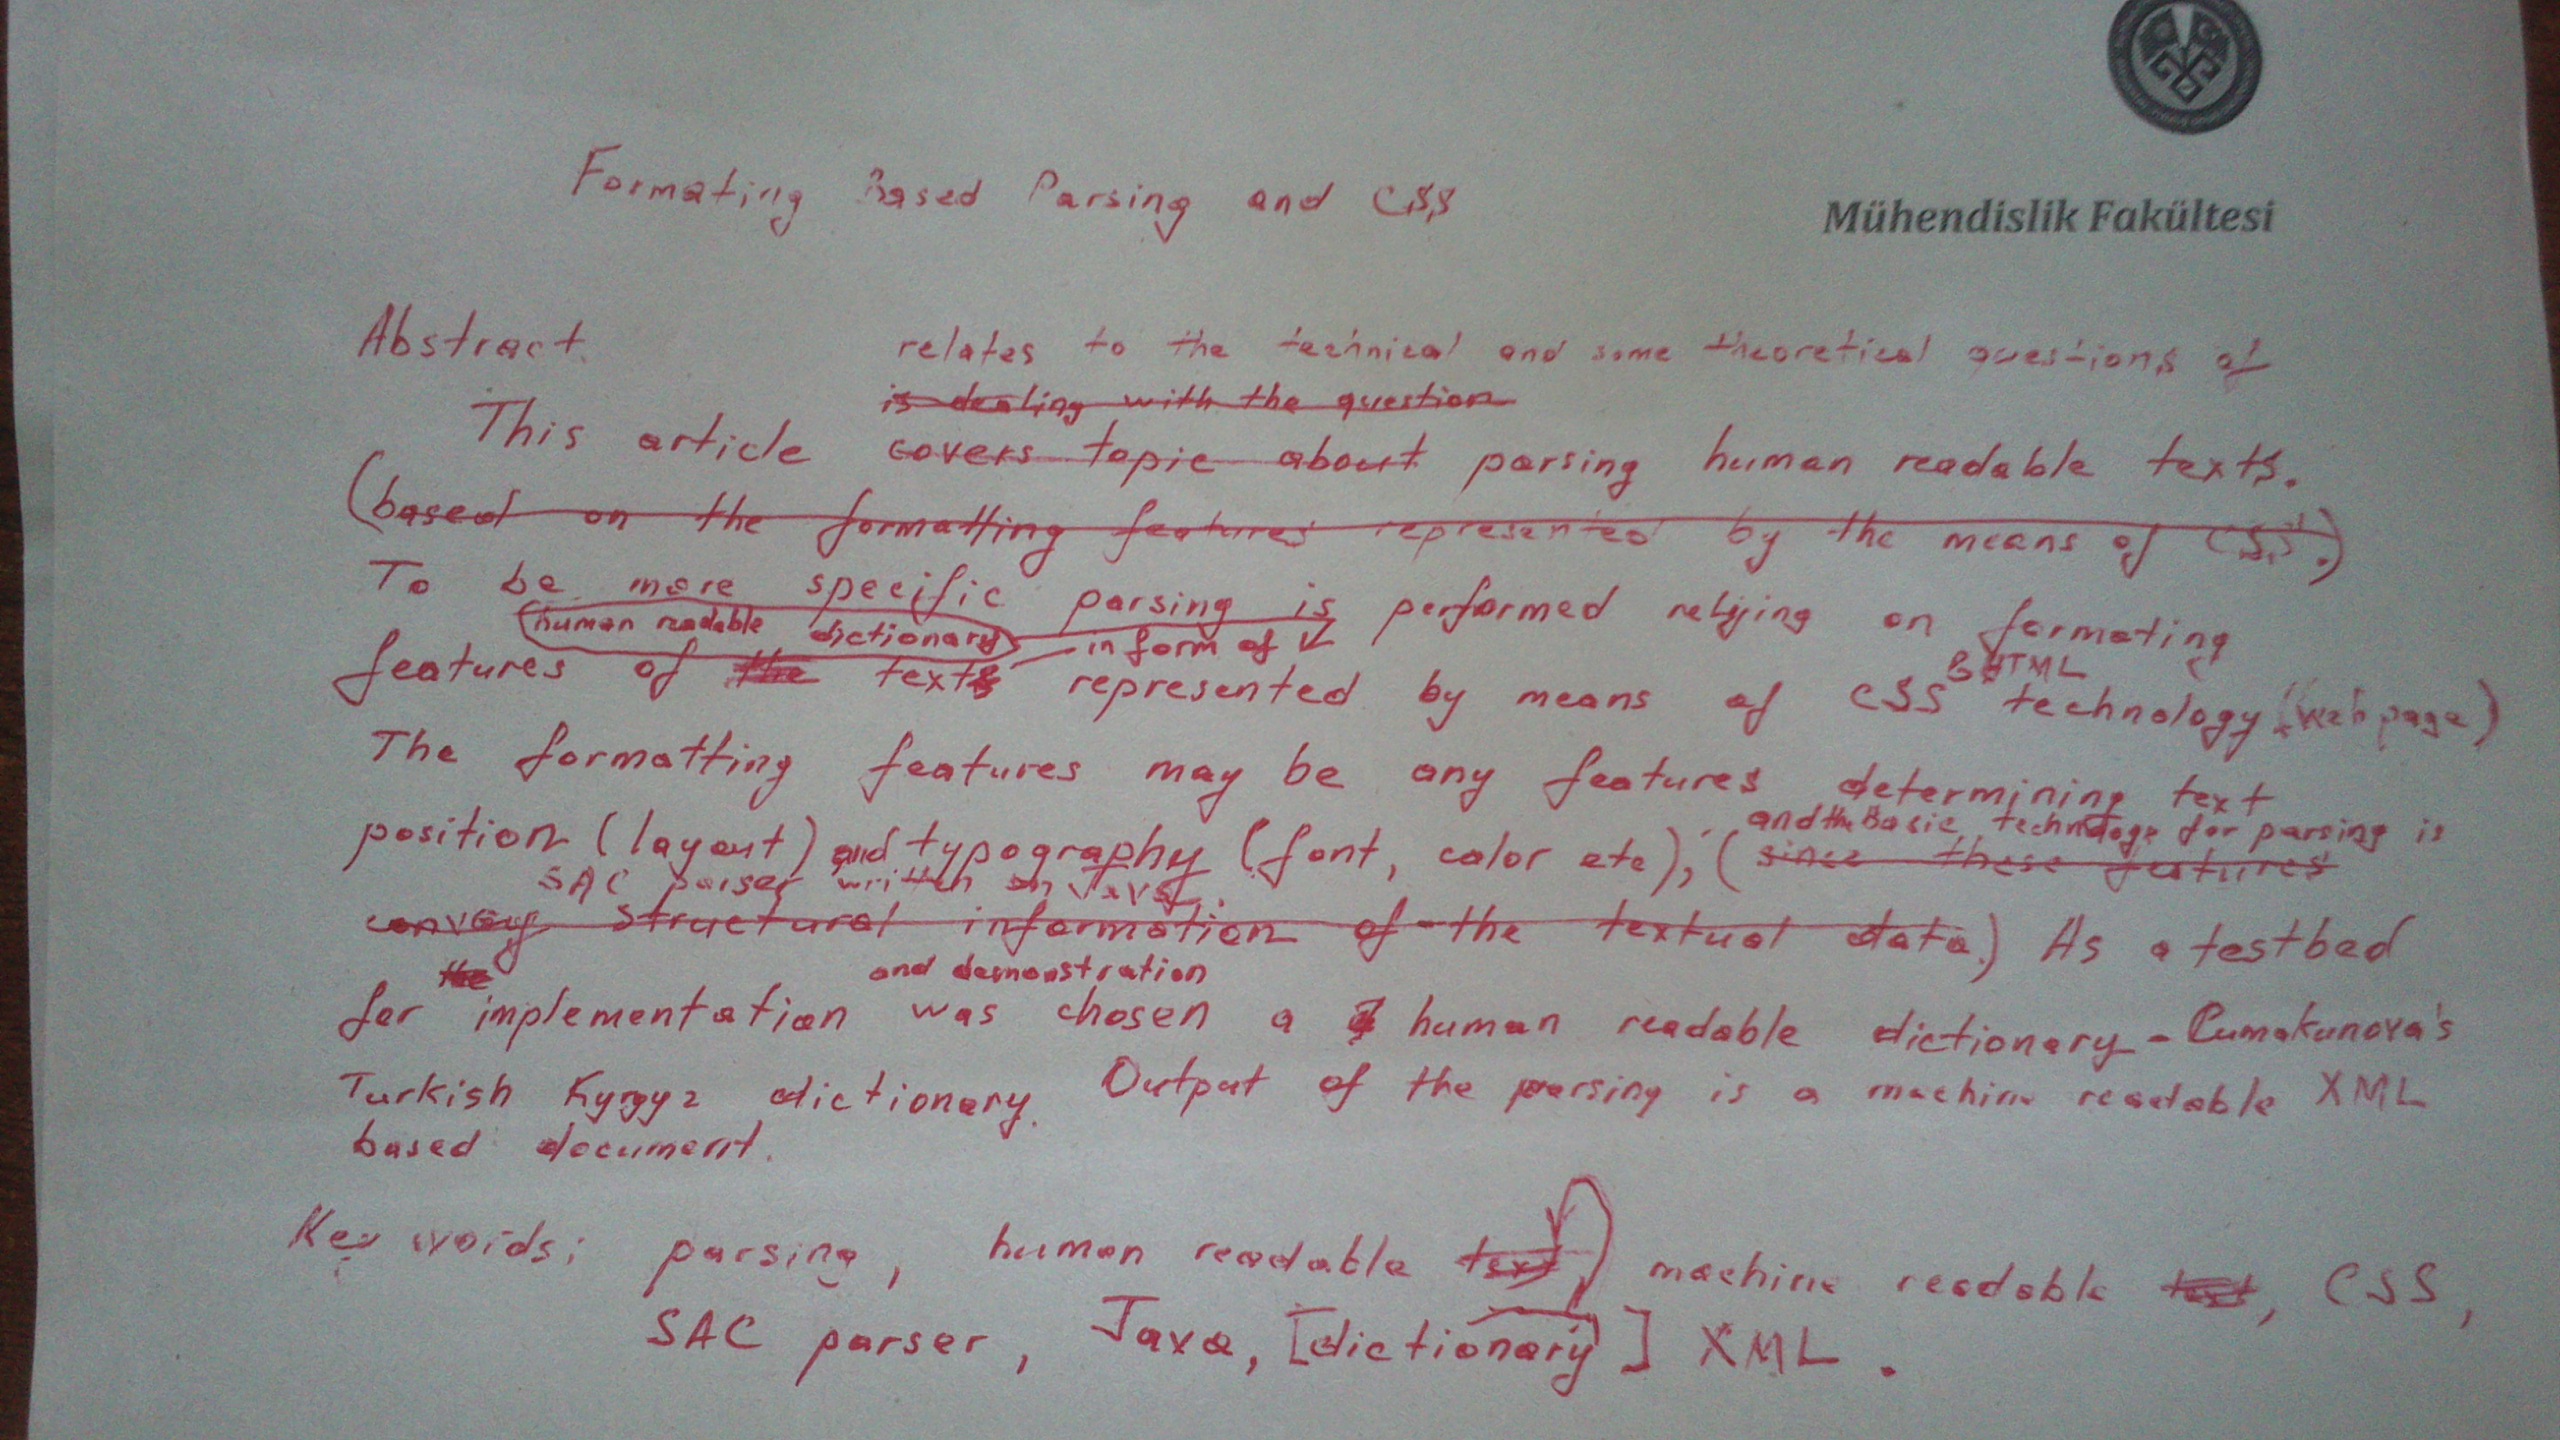 Mühendislik Fakültesi
Formating Based Parsing and CSS
Abstract
relates to the technical and some theoretical questions of
is dealing with the question
This article covers topic about parsing human readable texts.
(based on the formatting features represented by the means of CSS.)
To be more specific parsing is performed relying on formating
(human readable dictionary) in form of
HTML
features of the texts represented by means of CSS technology (web page)
The formatting features may be any features determining text
and the Basic technology for parsing is
position (layout) and typography (font, color etc), (since these features
SAC parser written on Java
convey structural information of the textual data.) As a testbed
the and demonstration
for implementation was chosen a human readable dictionary - Cumakunova's
Turkish Kyrgyz dictionary. Output of the parsing is a machine readable XML
based document.
Key words: parsing, human readable text, machine readable text, CSS,
SAC parser, Java, [dictionary] XML.